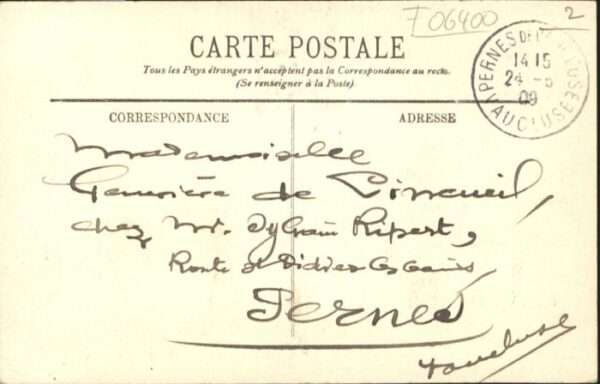 F 06400
2
CARTE POSTALE
Tous les Pays étrangers n'acceptent pas la Correspondance au recto.
(Se renseigner à la Poste).
PERNES
14 15
24 -
09
VAUCLUSE
CORRESPONDANCE
ADRESSE
Mademoiselle
Geneviève de
chez Mr. Sylvain Ripert,
Route St Didier les Bains
Pernes
Vaucluse